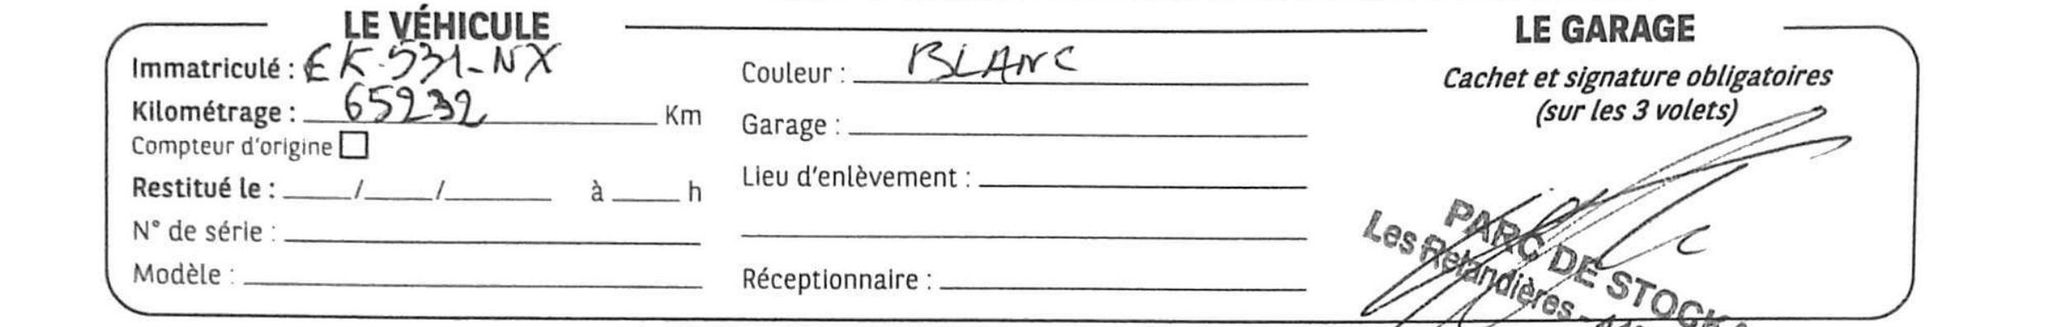 LE VÉHICULE
Immatriculé : EK-531-NX
Kilométrage : 65232 Km
Compteur d'origine
Restitué le : / / à h
N° de série :
Modèle :
Couleur : BLANC
Garage :
Lieu d'enlèvement :
Réceptionnaire :
LE GARAGE
Cachet et signature obligatoires
(sur les 3 volets)
PARC DE STOCK
Les Relandières -